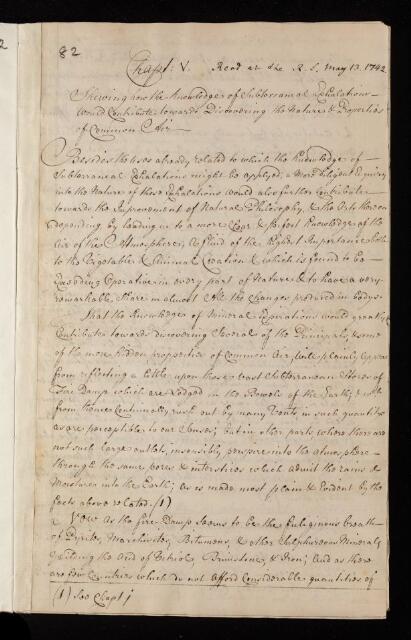 82
Chapt: V. Read at the R. S. May 13. 1742
Shewing how the Knowledge of Subterraneal Exhalations
Would Contribute towards Discovering the Nature & Properties
of Common Air
Besides the Uses already related to which the Knowledge of
Subterraneal Exhalations might be applyed, a More diligent Enquiry
into the Nature of those Exhalations would also further Contribute
towards the Improvement of Natural Philosophy, & the Arts thereon
depending by leading us to a more Clear & perfect Knowledge of the
Air of the Atmosphere; a fluid of the Highest Importance both
to the Vegetable & Animal Creation & which is found to be
Operative in every part of Nature & to have a very
remarkable Share in almost All the Changes produced in bodys.
That the Knowledge of Mineral Exspirations would greatly
Contribute towards discovering Several of the Principals, & some
of the more hidden properties of Common Air, will plainly appear
from reflecting a little upon those vast Subterranean Stores of
Fire Damps which are Lodged in the Bowels of the Earth; &
from thence Continually rush out by many Vents in such quantitys
as are perceptible to our Senses; but in other parts where there are
not such large outlets, insensibly perspire into the atmosphere
through the same pores & interstices which admit the rains &
Moistures into the Earth; as is made most plain & Evident by the
facts above related. (1)
Now as the fire-Damp Seems to be the fuliginous breath
of Pyrites, Marchisites, Bitumens, & other Sulphureous Minerals,
the Acid of Vitriol, Brimstone, & Iron; And as there
are few Countries which do not afford Considerable quantities of
(1) See Chapt